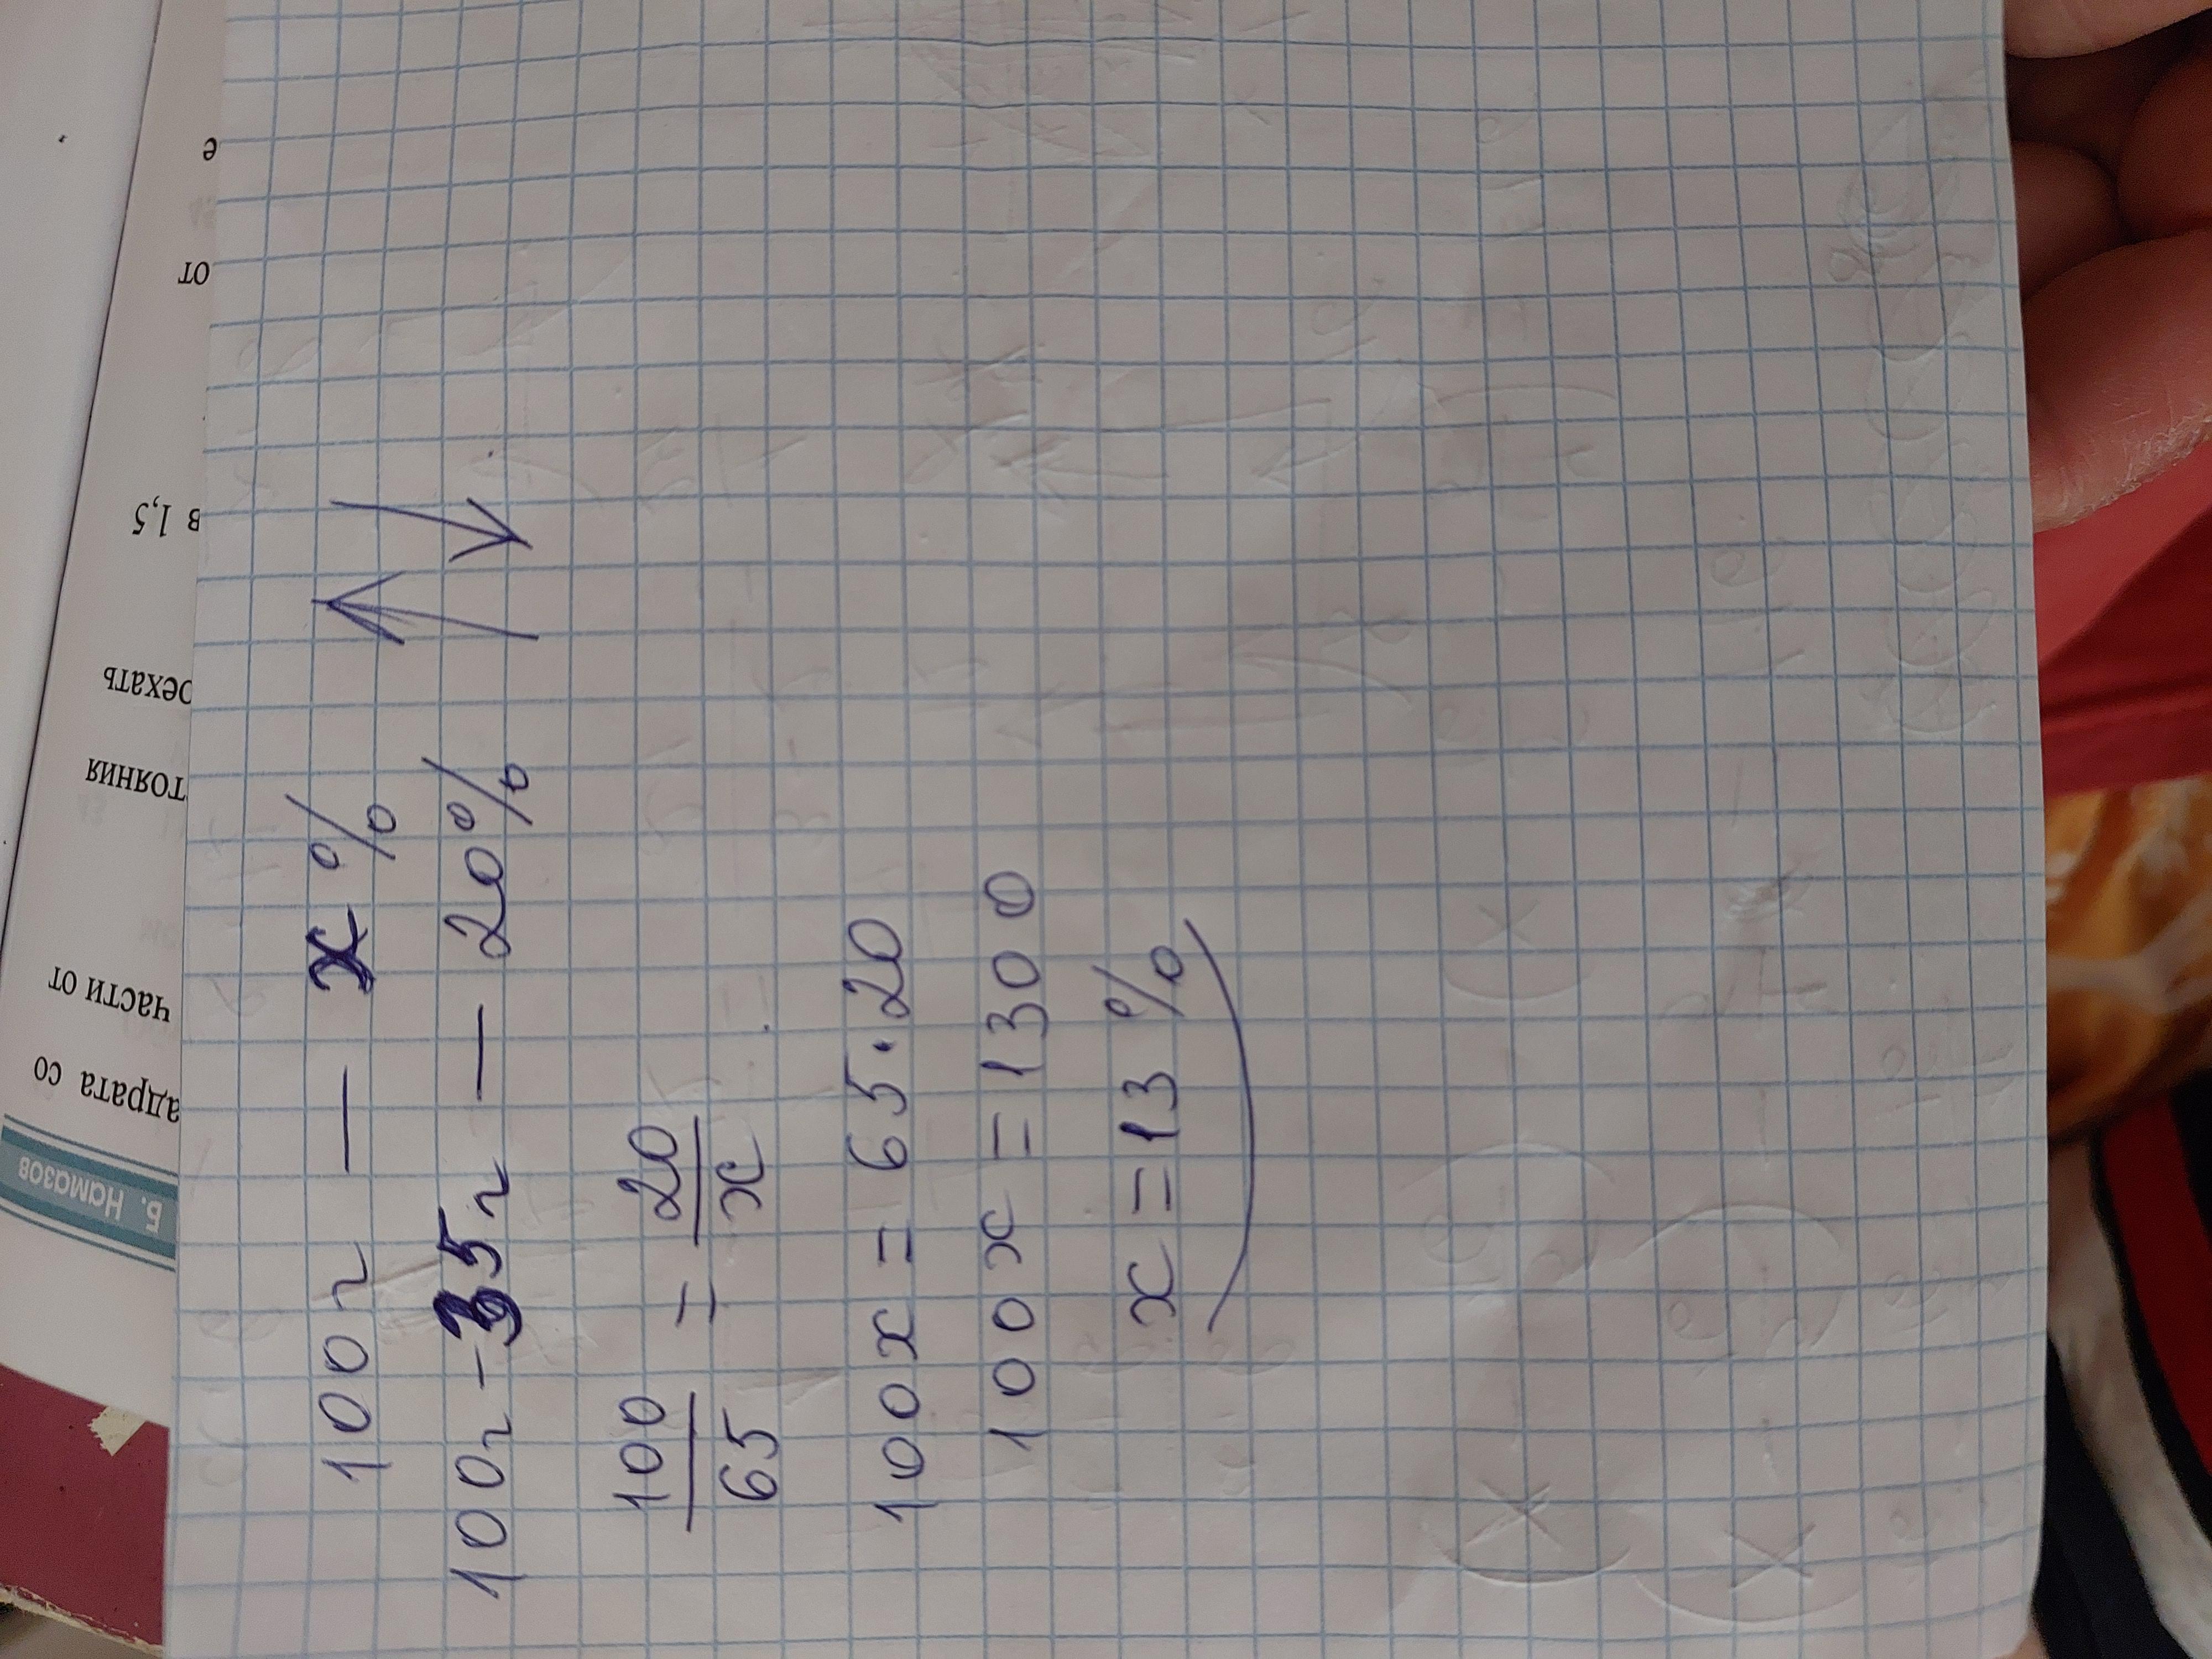 100г — x%
100г - 35г — 20%
100/65 = 20/x
100x = 65·20
100x = 1300
x = 13 %
Б. Намазов
адрата со
части от
тояния
рехать
в 1,5
от
е